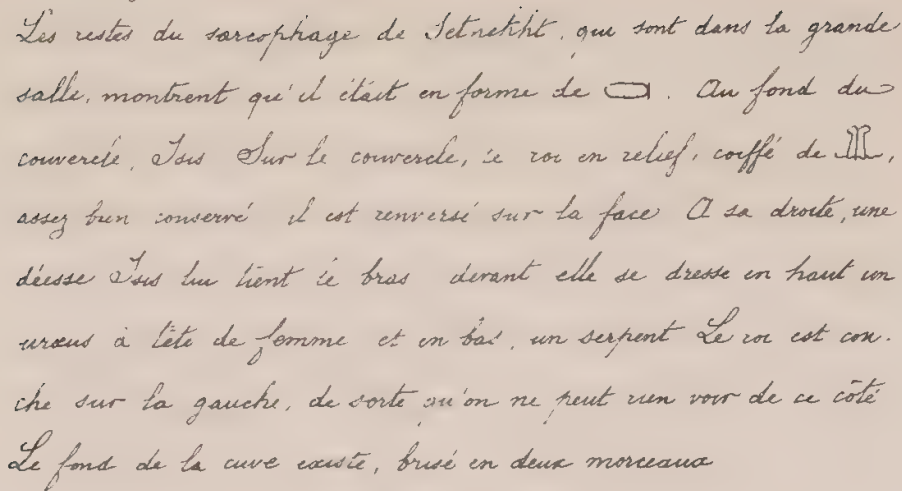 Les restes du sarcophage de Setnekht, qui sont dans la grande
salle, montrent qu'il était en forme de. Au fond du
couvercle, Isis Sur le couvercle, le roi en relief, coiffé de,
assez bien conservé il est renversé sur la face A sa droite, une
déesse Isis lui tient le bras devant elle se dresse en haut un
uræus à tête de femme et en bas, un serpent Le roi est cou-
ché sur la gauche, de sorte qu'on ne peut rien voir de ce côté
Le fond de la cuve existe, brisé en deux morceaux